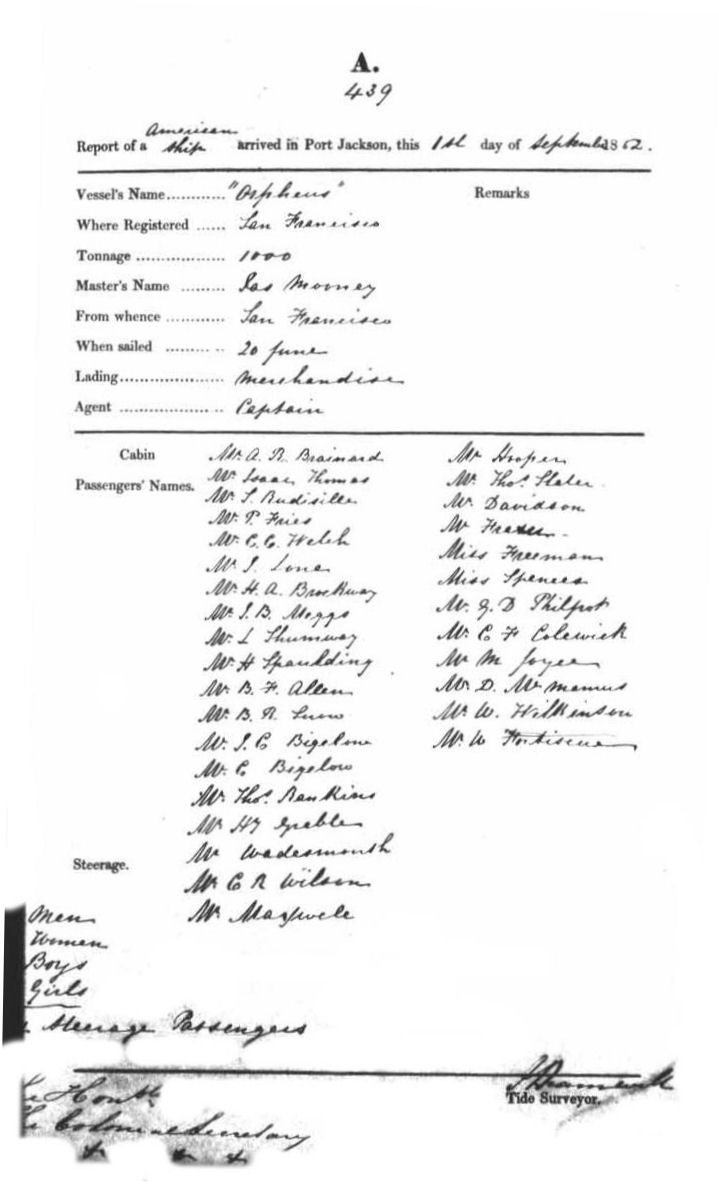 A.
439
American
Report of a ship arrived in Port Jackson, this 1st day of September 1852.
Vessel's Name............ "Orpheus" Remarks
Where Registered ...... San Francisco
Tonnage .................. 1000
Master's Name ......... Jas Mooney
From whence ............ San Francisco
When sailed ........... 20 June
Lading..................... Merchandise
Agent ..................... Captain
Cabin Passengers' Names.
Mr. A. R. Brainard
Mr. Isaac Thomas
Mr. S. Rudisille
Mr. P. Fries
Mr. C. C. Welch
Mr. J. Lone
Mr. H. A. Brockway
Mr. J. B. Meggs
Mr. L Shumway
Mr. H Spaulding
Mr. B. F. Allen
Mr. B. R. Snow
Mr. J. C Bigelow
Mr. C Bigelow
Mr. Thos. Rankins
Mr. Hy Grable
Mr Wadesmouth
Mr. C R Wilson
Mr. Maxwele
Mr Hooper
Mr. Thos. Slater
Mr. Davidson
Mr Frazer
Miss Freeman
Miss Spencer
Mr. G. D Philpot
Mr. C F Colewick
Mr M Joyce
Mr. D. McManus
Mr. W. Wilkinson
Mr. W Fortiscue
Steerage.
Men
Women
Boys
Girls
Steerage Passengers
Tide Surveyor.
Honble
Colonial Secretary